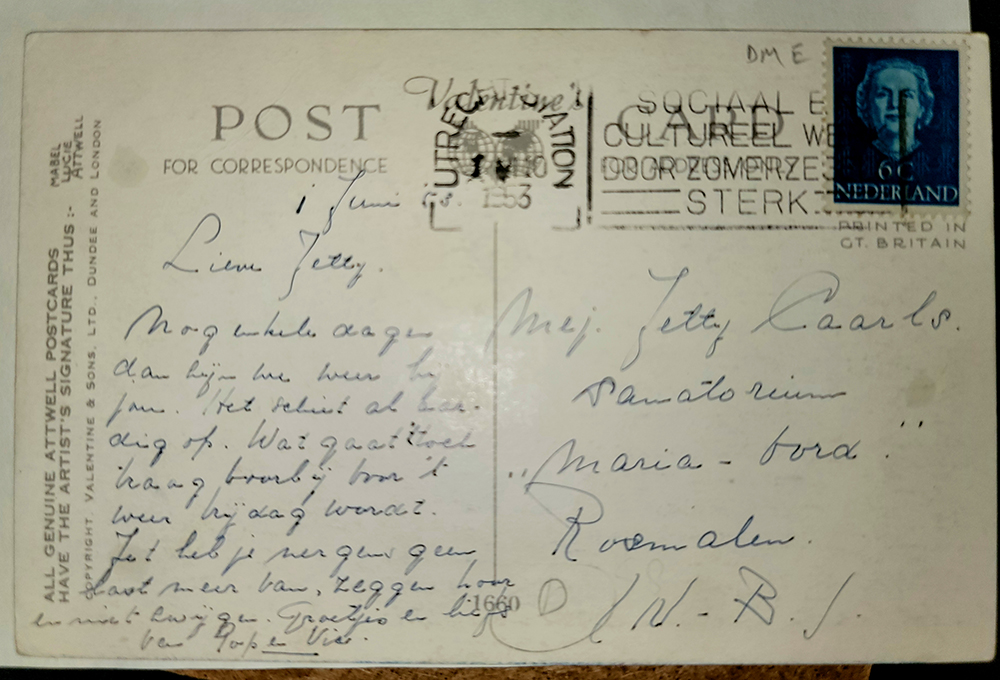 DME
Valentine's
POST CARD
FOR CORRESPONDENCE
UTRECHT STATION
1953
SOCIAAL E
CULTUREEL WE
DOOR ZOMERZE
STERK
6 C
NEDERLAND
PRINTED IN
GT. BRITAIN
MABEL
LUCIE
ATTWELL
ALL GENUINE ATTWELL POSTCARDS
HAVE THE ARTIST'S SIGNATURE THUS :-
COPYRIGHT. VALENTINE & SONS, LTD., DUNDEE AND LONDON
1 Juni
Lieve Jetty.
Nog enkele dagen
dan zijn we weer bij
jou. Het schiet al aar-
dig op. Wat gaat 't toch
traag voorbij voor 't
weer vrijdag wordt.
Jet heb je nergens geen
last meer van, zeggen hoor
en niet zwijgen. Groetjes en
van Pap en
1660
D
Mej. Jetty Caarls.
Sanatorium
„Maria-oord".
Rosmalen.
(N.-B.).